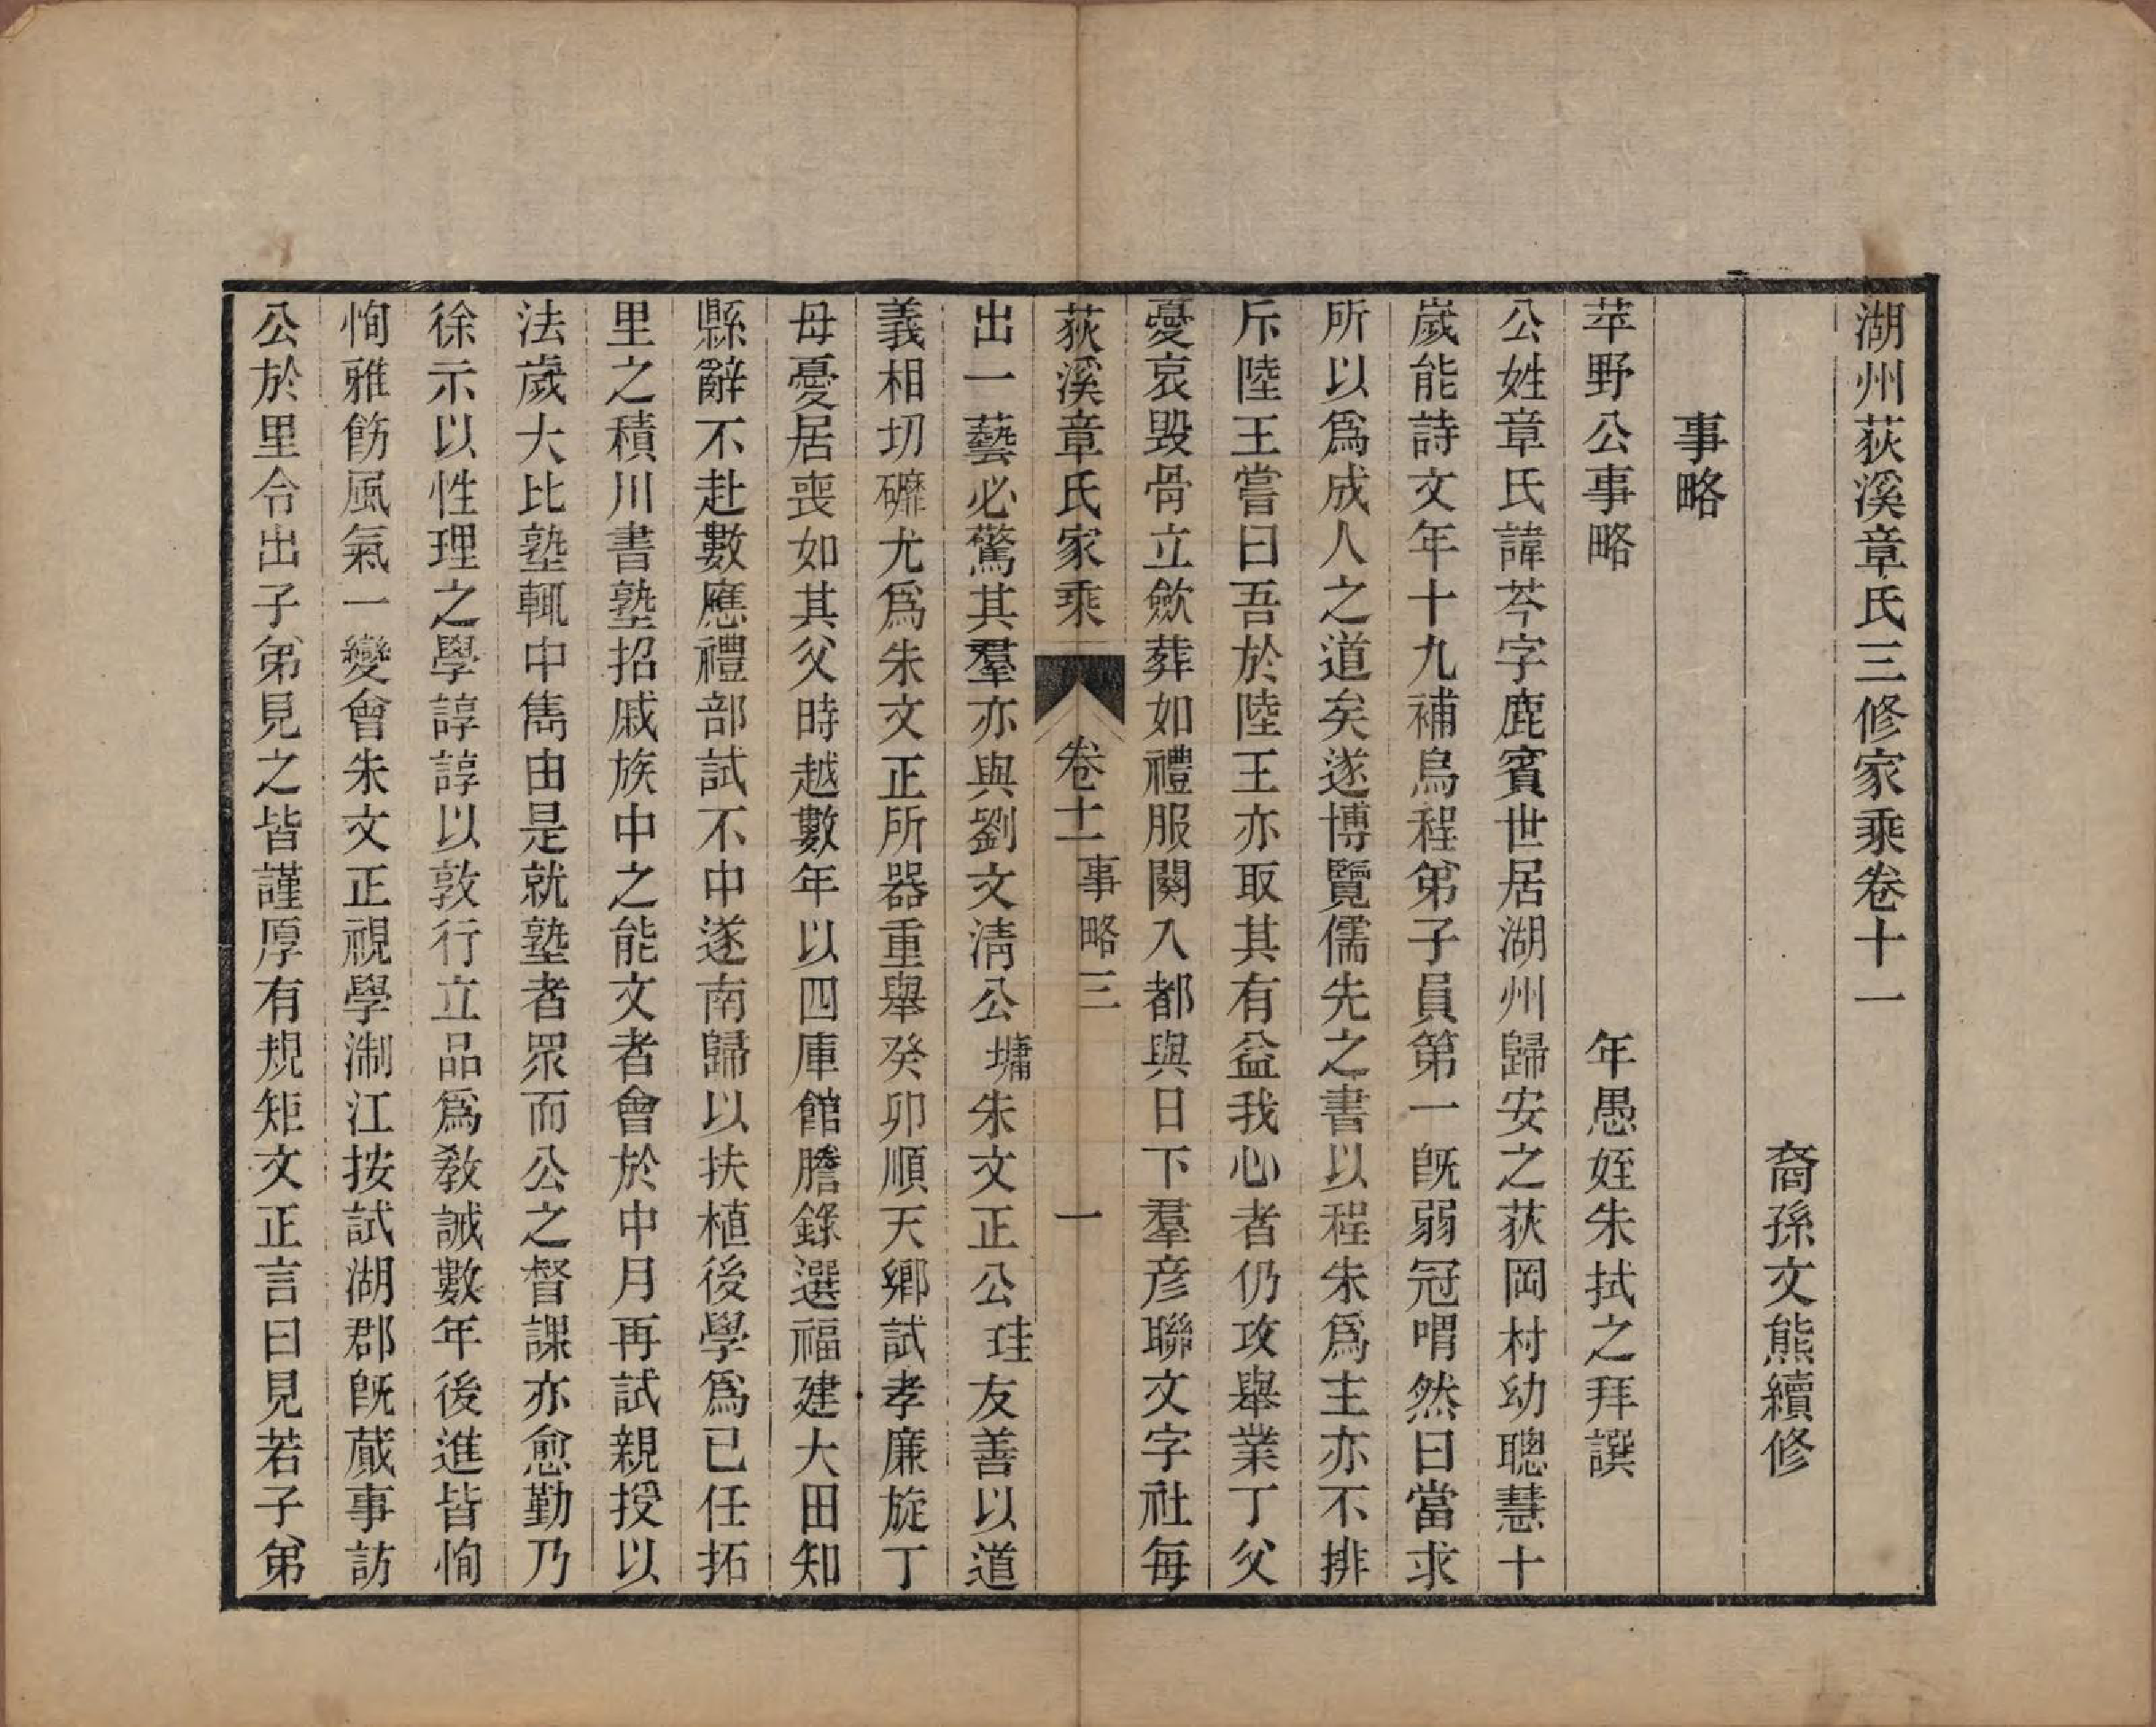 湖州荻溪章氏三修家乘卷十一
裔孫文熊續修
事略
苹野公事略　年愚姪朱拭之拜譔
公姓章氏諱芩字鹿賓世居湖州歸安之荻岡村幼聰慧十
歲能詩文年十九補烏程弟子員第一旣弱冠喟然曰當求
所以爲成人之道矣遂博覽儒先之書以程朱爲主亦不排
斥陸王嘗曰吾於陸王亦取其有益我心者仍攻舉業丁父
憂哀毀骨立斂葬如禮服闋入都與日下羣彥聯文字社每
荻溪章氏家乘　卷十一　事略三　一
出一藝必驚其羣亦與劉文清公墉朱文正公珪友善以道
義相切礳尤爲朱文正所器重舉癸卯順天鄉試孝廉旋丁
母憂居喪如其父時越數年以四庫館謄錄選福建大田知
縣辭不赴數應禮部試不中遂南歸以扶植後學爲已任拓
里之積川書塾招戚族中之能文者會於中月再試親授以
法歲大比塾輒中雋由是就塾者眾而公之督課亦愈勤乃
徐示以性理之學諄諄以敦行立品爲教誡數年後進皆恂
恂雅飭風氣一變會朱文正視學淛江按試湖郡旣蕆事訪
公於里令出子弟見之皆謹厚有規矩文正言曰見若子弟